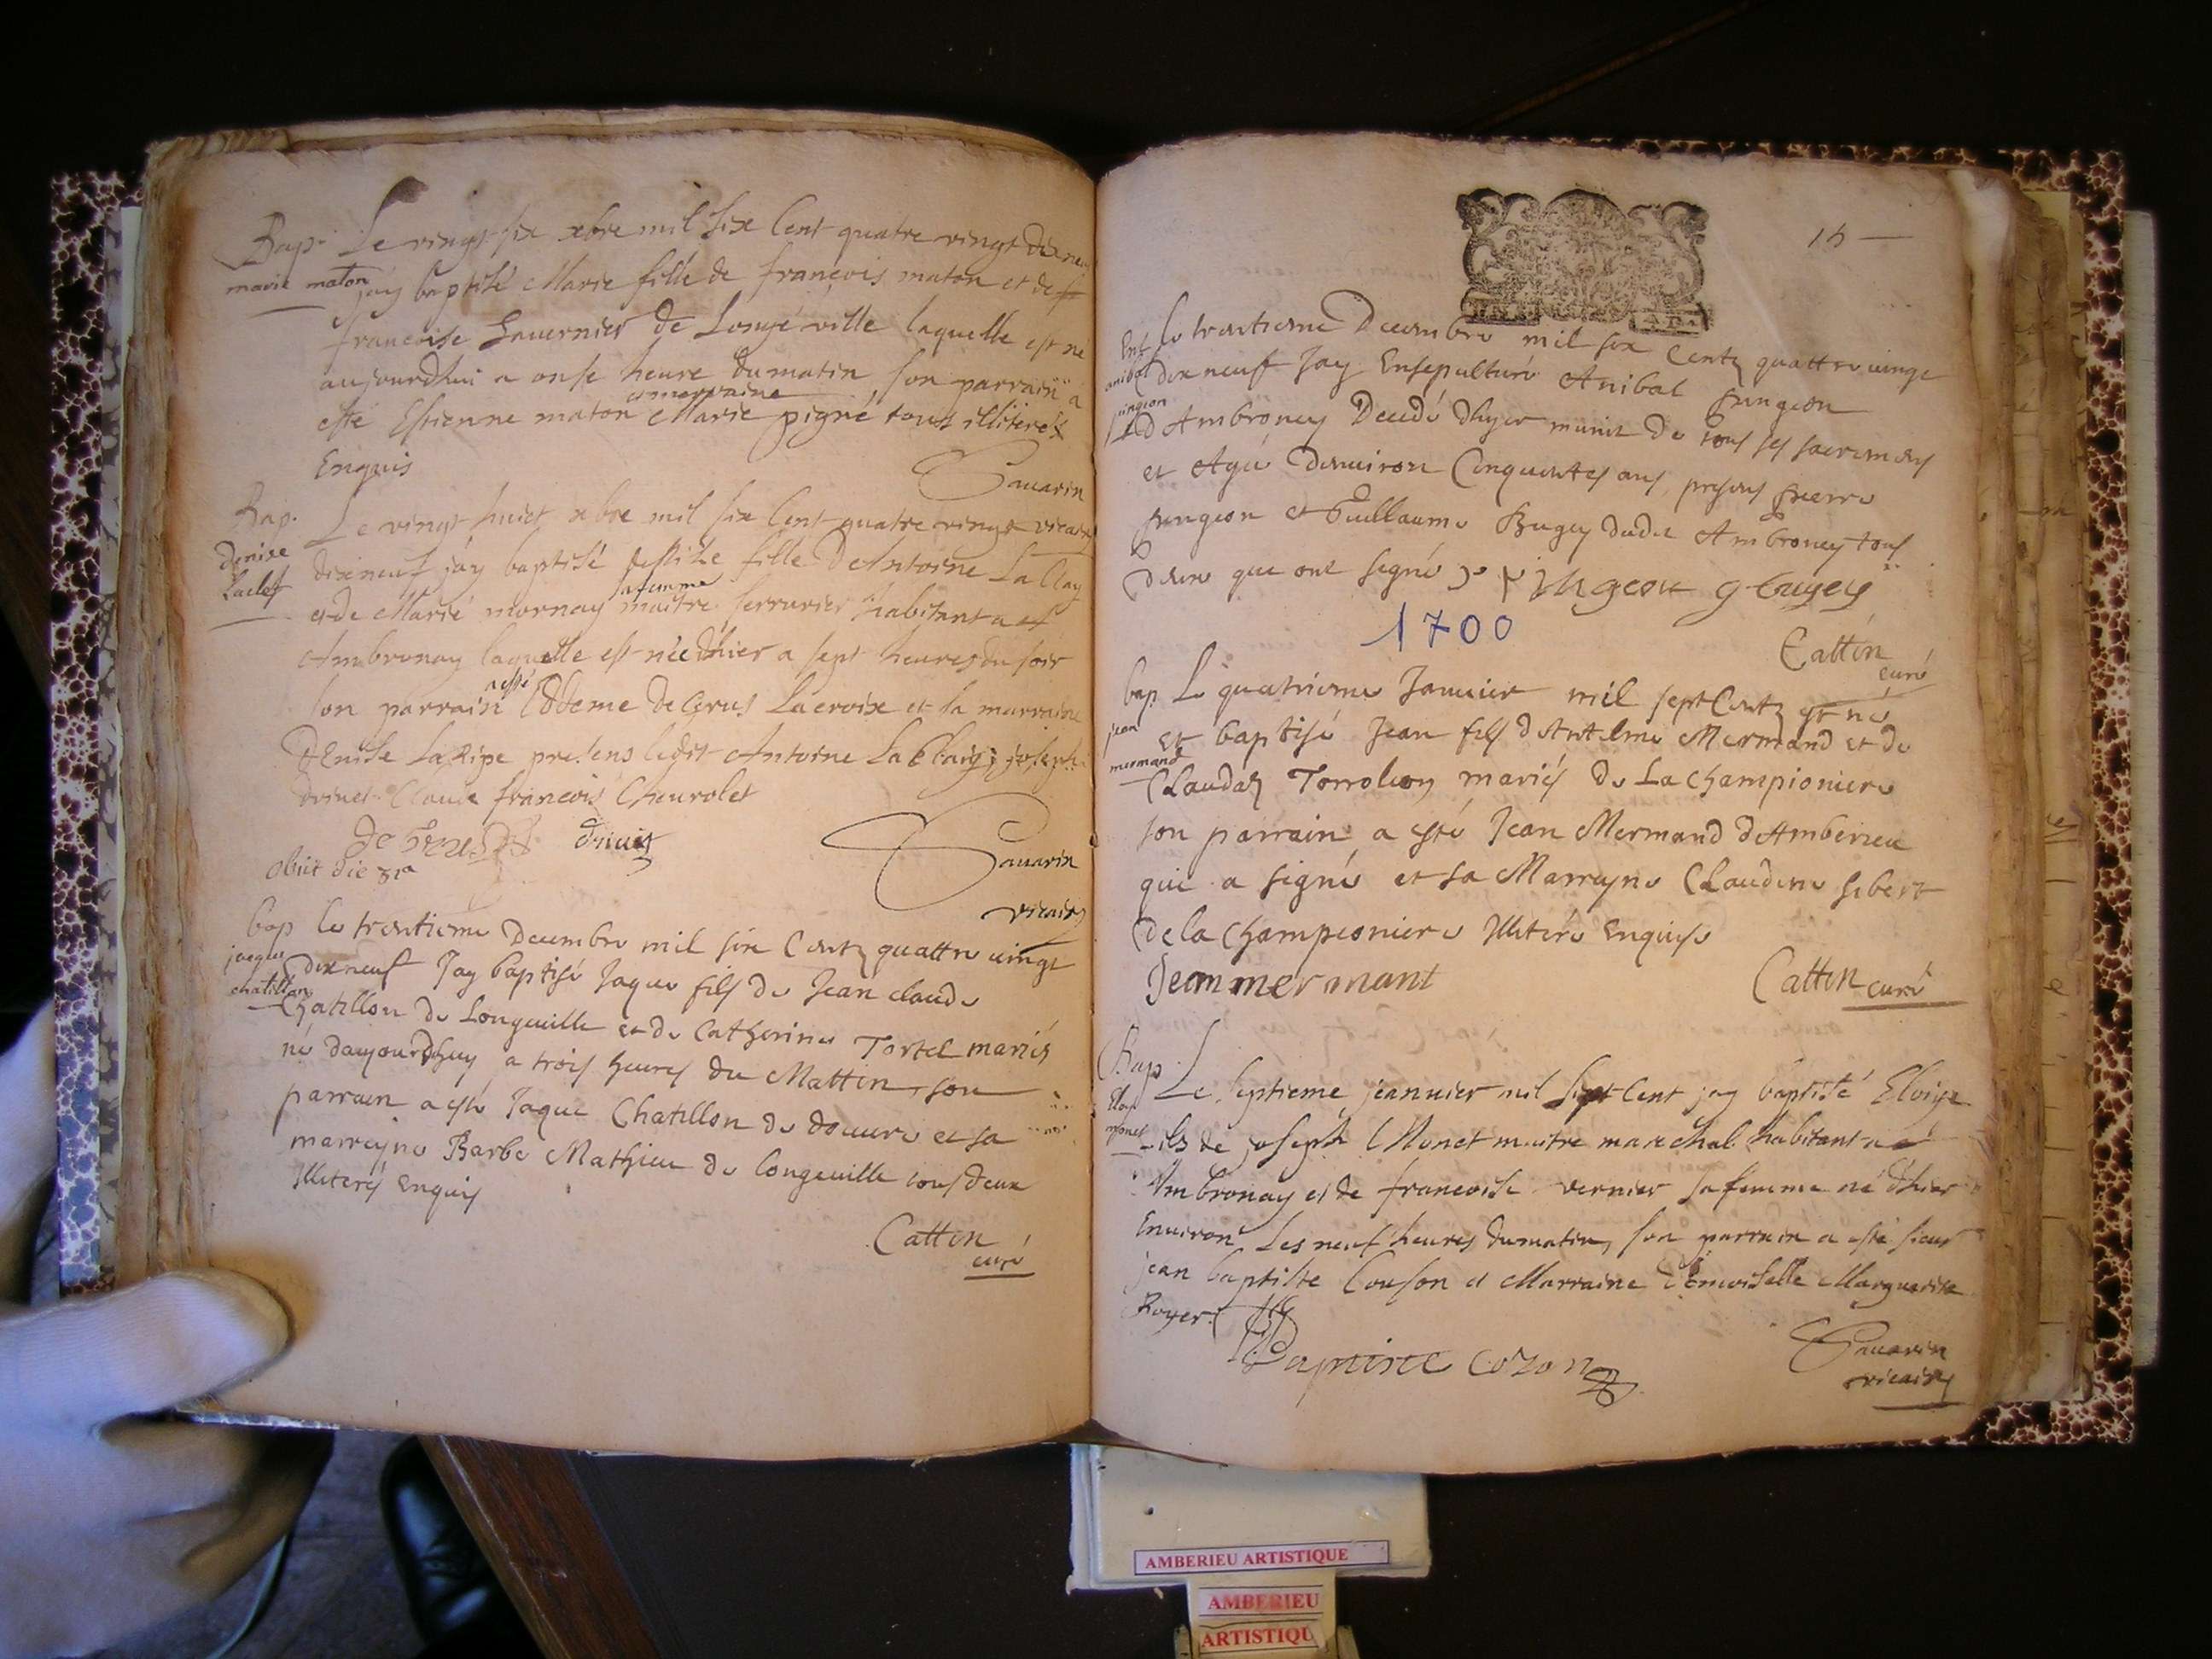 Bap. Le vingt six xbre mil six Cent quatre vingt dixneuf
marie maton
jay baptisé Marie fille de francois maton et de
francoise Lauernier de Longeville laquelle est né
aujourdhui a onse heure du matin son parrain a
esté Estienne maton et marraine Marie pigné tous illiterés
Enquis
Sauarin
vicaire
Bap. Le vingt huict xbre mil six Cent quatre vingt
denise
Laclef
dixneuf jay baptisé fille D'Antoine La Clay
et de Marie mornay sa femme maitre serrurier habitant a
Ambronay laquelle est née dhier a sept heures du soir
son parrain a esté de Lacroix et sa marraine
Denise La Ripe presens ledit Antoine La Clay joseph
drivet Claude francois Cheurolet
driuet
Sauarin
vicaire
obiit die 31a
bap le trentieme Decembre mil six Centz quattre uingt
jaque
chatillon
dixneuf Jay baptisé Jaque fils de Jean claude
Chatillon de Longeuille et de Catherine Tortel mariés
né daujourdhuy a trois heures du Mattin, son
parrain a esté Jaque Chatillon de douure et sa
marrayne Barbe Mathieu de Longeuille tous deux
Illiterés Enquis
Cattin
curé
15
Ent le trentieme Decembre mil six Centz quattre uingt
anibal
pingeon
dixneuf Jay Ensepulturé Anibal pingeon
d'Ambroney Decedé dhyer munit de tous ses sacremens
et Agé denuiron Cinquantes ans, presens pierre
pingeon et Guillaume Bugey dudit Ambroney tous
deux qui ont signé pingeon g bugey
1700
Cattin
curé
bap Le quatrieme Januier mil sept Centz est né
jean
mermand
et baptisé Jean fils d'Antelme Mermand et de
Claudaz Torroleon mariés de La Championiere
son parrain a esté Jean Mermand d'Amberieu
qui a signé et sa Marrayne Claudine sibert
de la Championiere Illitere Enquise
Jeam mermant
Cattin curé
Bap. Le septieme jeannier mil sept Cent jay baptisé Eloige
Eloy
monet
fils de joseph Monet maitre marechal habitant a
Ambronay et de francoise vernier sa femme né d'hier
Enuiron Les neuf heures du matin, son parrain a esté sieur
jean baptiste Couson et Marraine Demoiselle Marguerite
Royer.
Baptiste cozon
Sauarin
vicaire
AMBERIEU ARTISTIQUE
AMBERIEU
ARTISTIQU